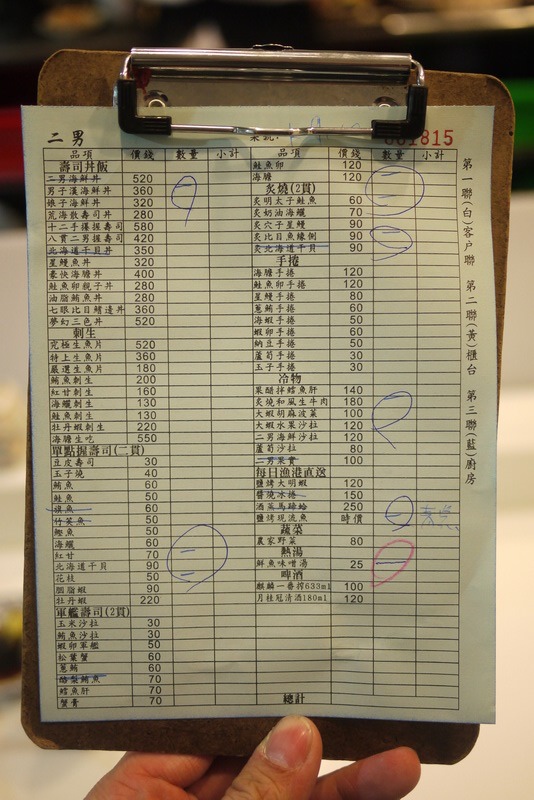 二男
001815
品項 價錢 數量 小計
壽司丼飯
二男海鮮丼 520
男子漢海鮮丼 360
娘子海鮮丼 320
荒海散壽司丼 280
十二手握握壽司 580
八貫二男握壽司 420
北海道干貝丼 350
星鰻魚丼 320
豪快海膽丼 400
鮭魚卵親子丼 280
油脂鮪魚丼 280
七眼比目鰭邊丼 360
夢幻三色丼 520
刺生
究極生魚片 520
特上生魚片 360
嚴選生魚片 180
鮪魚刺生 200
紅甘刺生 160
海鱺刺生 130
鮭魚刺生 130
牡丹蝦刺生 220
海膽生吃 550
單點握壽司(二貫)
豆皮壽司 30
玉子燒 40
鮪魚 60
鮭魚 50
旗魚 60
竹莢魚 50
鰹魚 50
海鱺 60
紅甘 70
北海道干貝 90
花枝 50
胭脂蝦 90
牡丹蝦 220
軍艦壽司(2貫)
玉米沙拉 30
鮪魚沙拉 30
蝦卵軍艦 50
松葉蟹 60
蔥鮪 60
醋製鮪魚 70
鱈魚肝 70
蟹膏 70
品項 價錢 數量 小計
鮭魚卵 120
海膽 120
炙燒(2貫)
炙明太子鮭魚 60
炙奶油海鱺 70
炙穴子星鰻 90
炙比目魚緣側 90
炙北海道干貝 90
手捲
海膽手捲 120
鮭魚卵手捲 120
星鰻手捲 80
蔥鮪手捲 60
海蝦手捲 50
蝦卵手捲 60
納豆手捲 50
蘆筍手捲 30
玉子手捲 30
冷物
果醋拌鱈魚肝 140
炙燒和風生牛肉 180
大蝦胡麻波菜 100
大蝦水果沙拉 120
二男海鮮沙拉 120
蘆筍沙拉 80
二男果實 100
每日漁港直送
鹽烤大明蝦 120
醬燒小捲 150
酒蒸馬蹄蛤 250
鹽烤現流魚 時價
蔬菜
農家野菜 80
熱湯
鮮魚味噌湯 25
啤酒
麒麟一番搾633ml 100
月桂冠清酒180ml 120
總計
第一聯(白)客戶聯 第二聯(黃)櫃台 第三聯(藍)廚房